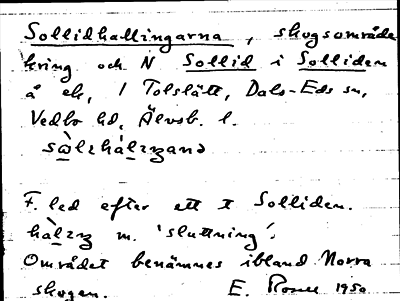 Sollidhallingarna, skogsområde
kring och N Sollid i Solliden
å ek, 1 Tolslätt, Dals-Eds sn,
Vedbo hd, Älvsb. l.
F. led efter ett † Solliden.
m. 'sluttning'.
Området benämnes ibland Norra
skogen. E. 1950